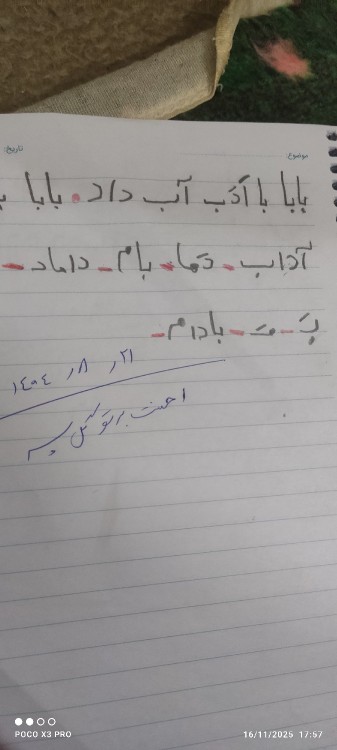 موضوع: تاریخ:
بابا با اَدَب آب داد. بابا
آداب - دَما - بام - داماد -
بَ - مَ - بادام -
۱۴۰۴ / ۸ / ۲۱
احسنت بر تو گل
POCO X3 PRO 16/11/2025 17:57